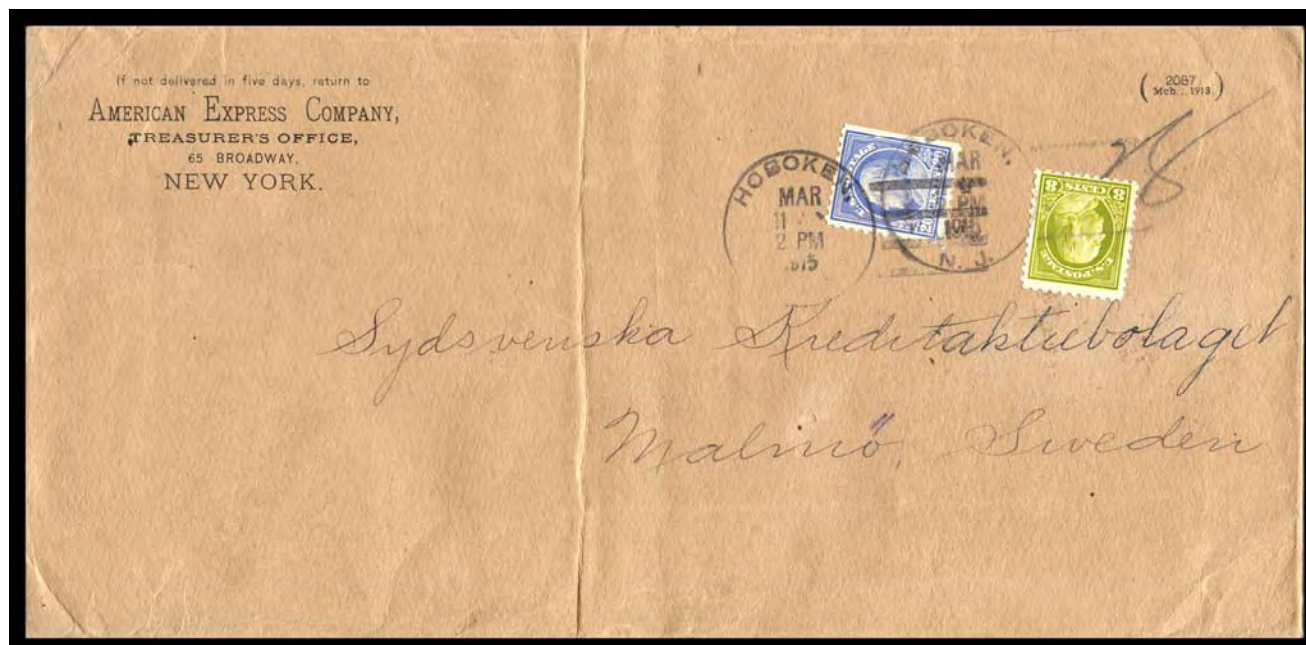 If not delivered in five days, return to
AMERICAN EXPRESS COMPANY,
TREASURER'S OFFICE,
65 BROADWAY,
NEW YORK.
( 2087
Mch., 1913. )
28
HOBOKEN
MAR
11
2 PM
1915
U.S. POSTAGE
20 CENTS 20
HOBOKEN,
MAR
PM
1915
N. J.
8 CENTS 8
U.S. POSTAGE
Sydsvenska Kreditaktiebolaget
Malmö, Sweden